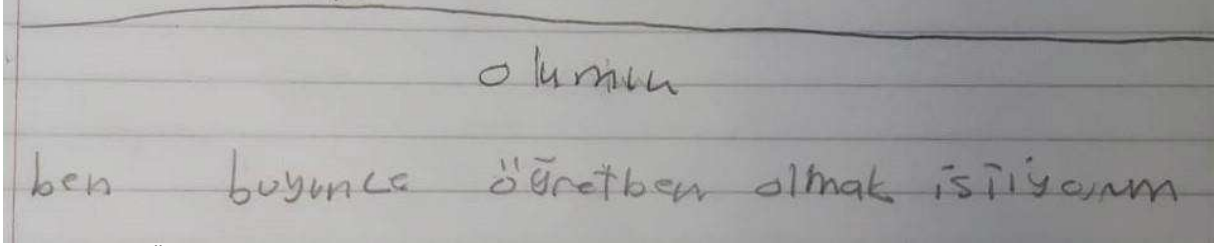 olumin
ben buyunce öğretben olmak istiiyorum